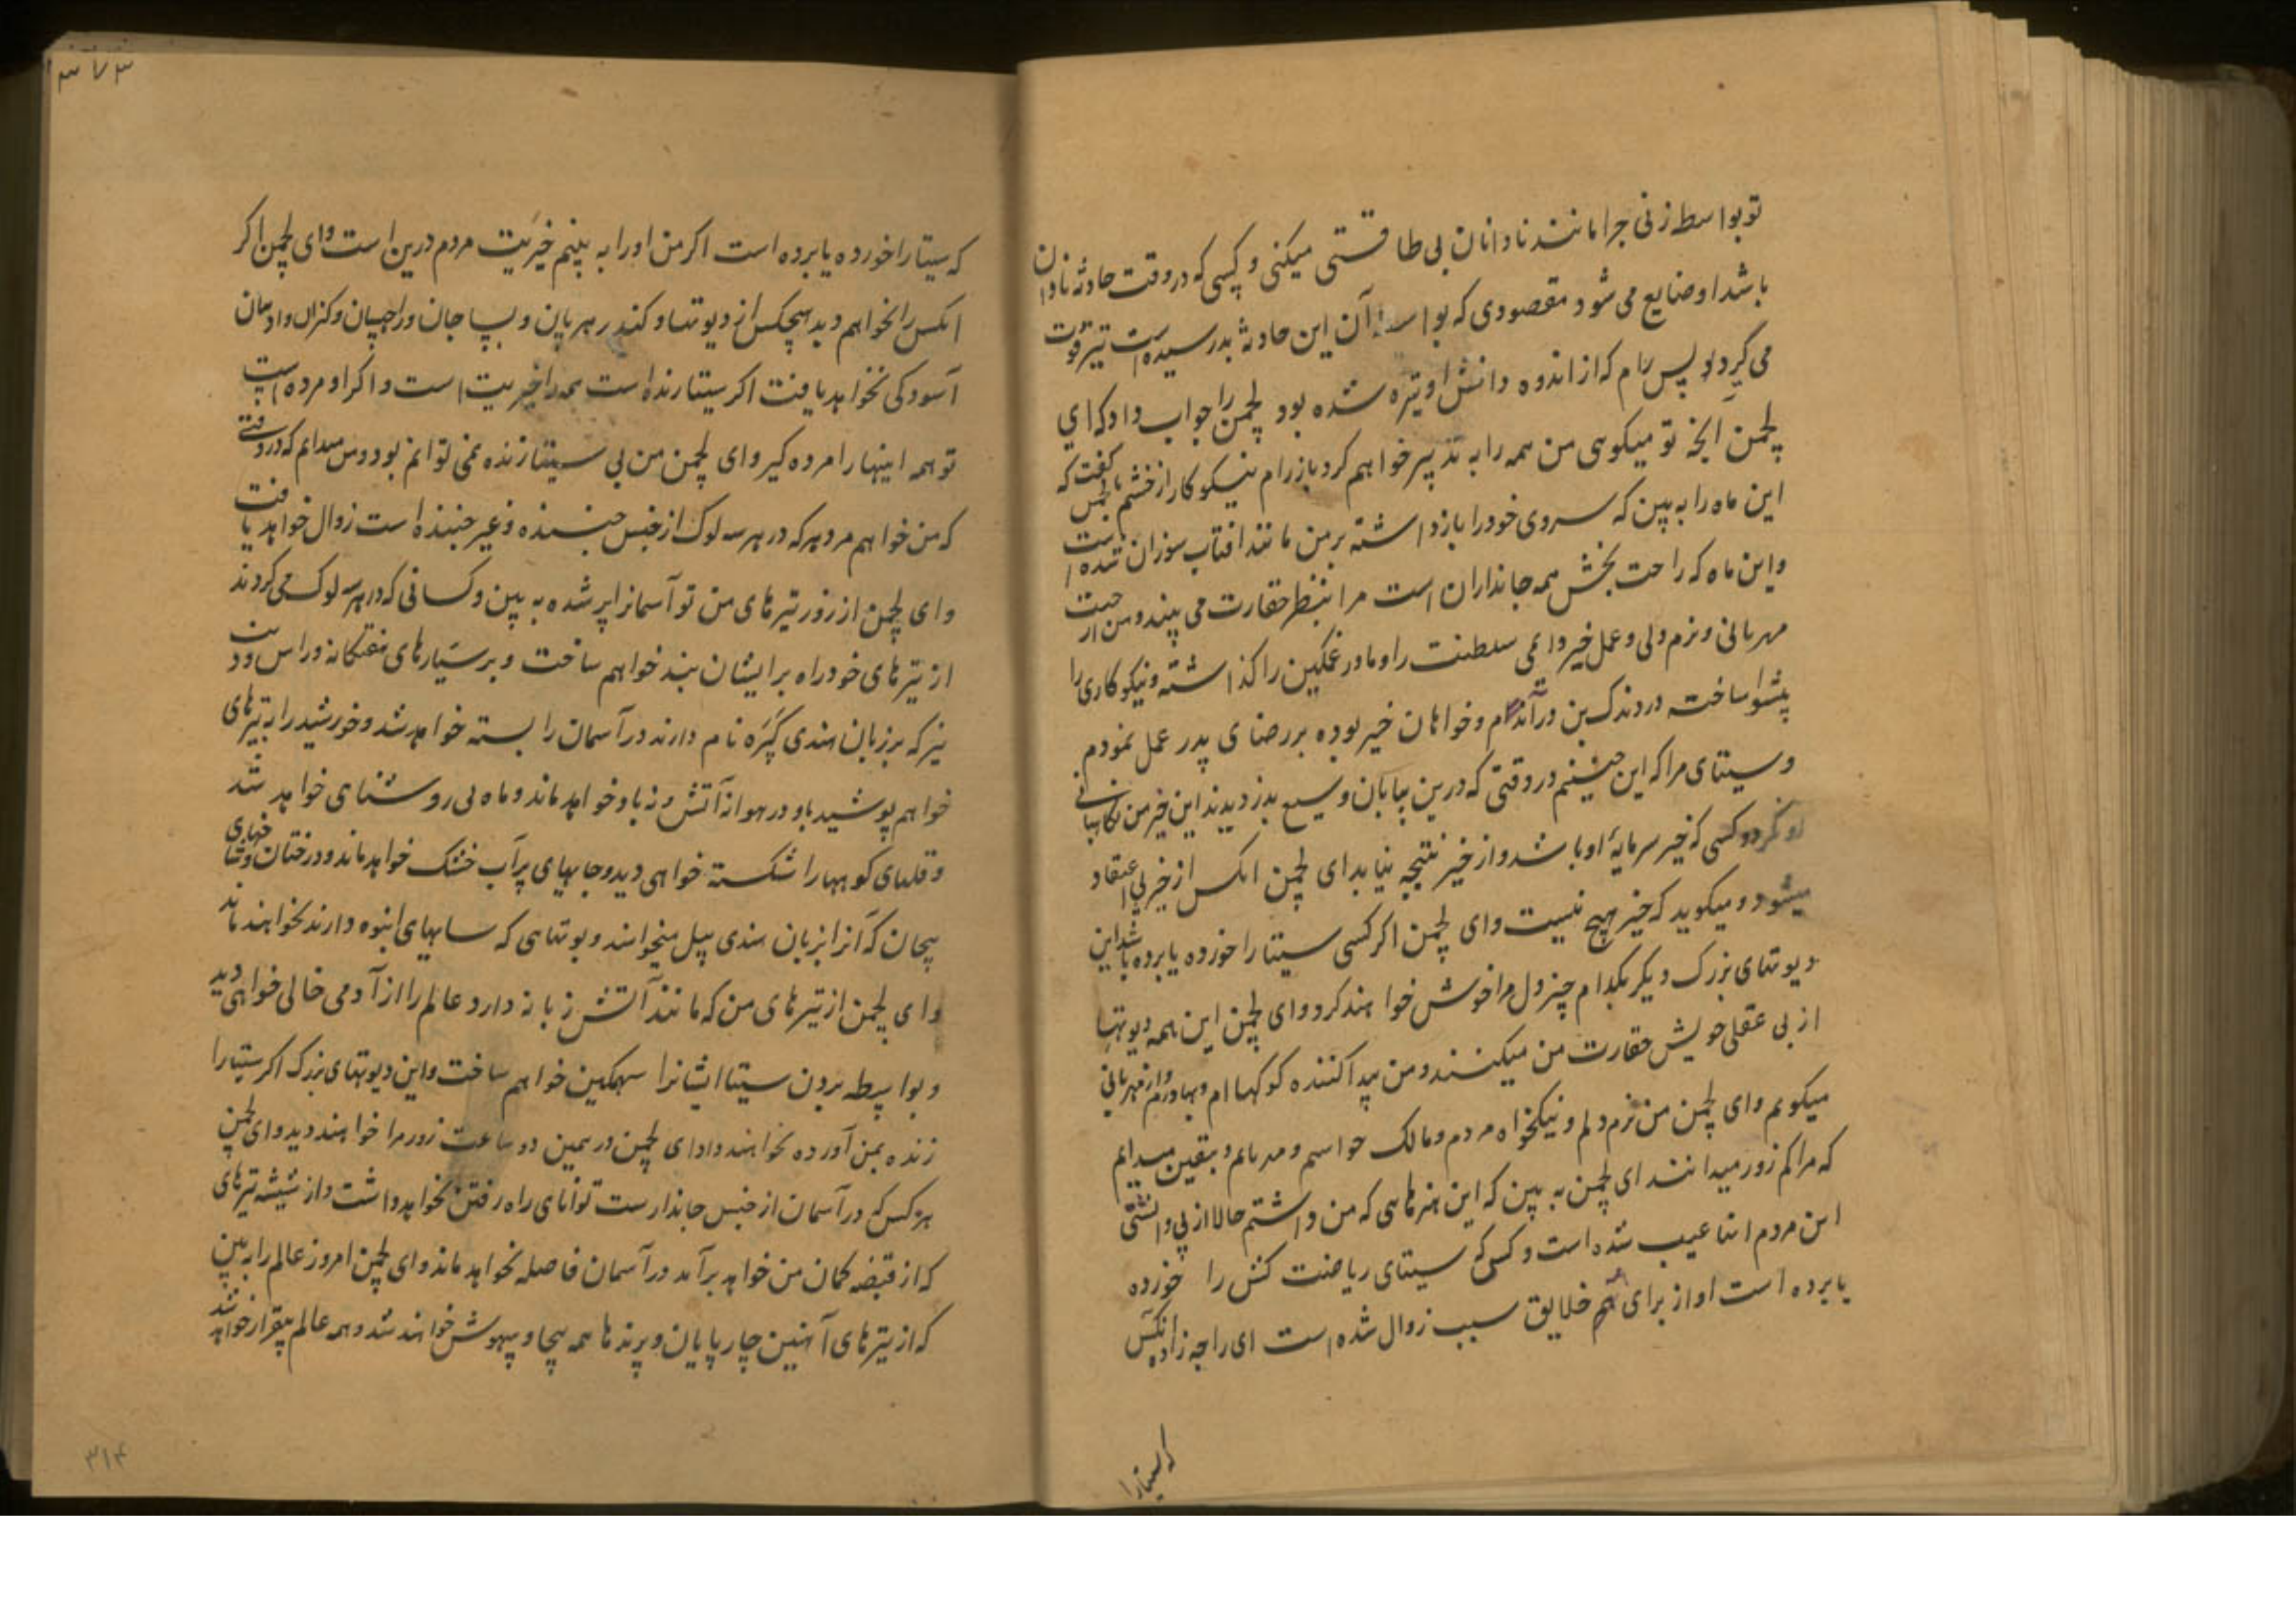 تو بواسطه زنی چرا مانند نادانان بی طاقتی میکنی و کسی که در وقت حادثه نادان
باشد او ضایع می شود مقصودی که آن این حادثه بدر رسیده است تیز قوت
می گردد پس رام که از اندوه دانش او تیره شده بود لچمن را جواب داد که ای
لچمن آنچه تو میکوی من همه را به تدبیر خواهم کرد باز رام نیکو کار از خشم با لچمن گفت که
این ماه را به بین که سردی خود را باز داشته بر من مانند افتاب سوزان شده است
و این ماه که راحت بخش همه جانداران است مرا بنظر حقارت می بیند و من از جهت
مهربانی و نرم دلی و عمل خیر دائمی سلطنت را و مادر غمگین را گذاشته و نیکو کاری را
پیشوا ساخته در دندک بن درآمده ام و خواهان خیر بوده بر رضای پدر عمل نمودم
و سیتای مرا که این چنینم در وقتی که درین بیابان وسیع بدزدیدند این خیر من نگاهبانی
او نکرد و کسی که خیر سرمایهٔ او باشد و از خیر نتیجه نیابد ای لچمن انکس از خیر بی اعتقاد
میشود و میکوید که خیر هیچ نیست و ای لچمن اکر کسی سیتا را خورده یا برده باشد این
دیوتهای بزرک دیکر بکدام چیز دل مرا خوش خواهند کرد و ای لچمن این همه دیوتها
از بی عقلی خویش حقارت من میکنند و من پیدا کننده کوهها ام و بهادرم و از مهربانی
میکویم و ای لچمن من نرم دلم و نیکخواه مردم و مالک حواسم و مهربانم و بیقین میدانم
که مرا کم زور میدانند ای لچمن به بین که این هنرهایی که من داشتم حالا از بی دانشی
این مردم عیب شده است و کسی که سیتای ریاضت کش را خورده
یا برده است او از برای همه خلایق سبب زوال شده است ای راجه زاده انکس
که سیتا را
۳۷۳
که سیتا را خورده یا برده است اکر من او را به بینم خیریت مردم درین است و ای لچمن اکر
انکس را نخواهم دید هیچکس از دیوتها و کندهربان و پساچان و راچسان و کنران و ادمیان
آسودکی نخواهد یافت اکر سیتا زنده است همه را خیریت است و اکر او مرده است
تو همه اینها را مرده کیر و ای لچمن من بی سیتا زنده نمی توانم بود و من میدانم که در وقتی
که من خواهم مرد هر که در هر سه لوک از جنس جنبنده و غیر جنبنده است زوال خواهد یافت
و ای لچمن از زور تیرهای من تو آسمان را پر شده به بین و کسانی که در هر سه لوک می کردند
از تیرهای خود راه بر ایشان بند خواهم ساخت و بر سیارهای هفتکانه و راس و ذنب
نیز که بر زبان هندی کره نام دارند در آسمان راه بسته خواهد شد و خورشید را به تیرهای
خواهم پوشید و در هوا نه آتش و نه باد خواهد ماند و ماه بی روشنای خواهد شد
و قلهای کوهها را شکسته خواهی دید و جایهای پر آب خشک خواهد ماند و درختان و شاخهای
پیچان که آنرا بزبان هندی بیل میخوانند و بوتهایی که سایهای انبوه دارند نخواهند ماند
و ای لچمن از تیرهای من که مانند آتش زبانه دارد عالم را از آدمی خالی خواهی دید
و بواسطه بردن سیتا ایشانرا سهمکین خواهم ساخت و این دیوتهای بزرک اکر سیتا را
زنده بمن آورده نخواهند داد ای لچمن در همین دو ساعت زور مرا خواهند دید و ای لچمن
هر کس که در آسمان از جنس جاندار ست توانای راه رفتن نخواهد داشت و از تیرهای
که از قبضه کمان من خواهد برآمد در آسمان فاصله نخواهد ماند و ای لچمن امروز عالم را به بین
که از تیرهای آهنین چارپایان و پرندها همه بیجا و بیهوش خواهند شد و همه عالم بیقرار خواهد شد
۳۱۴